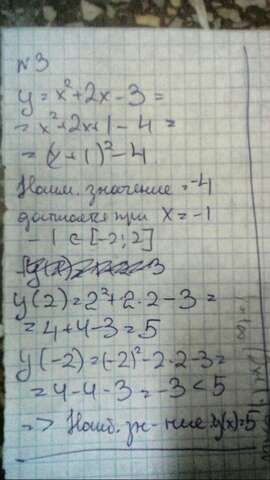 №3
y = x²+2x-3 =
= x²+2x+1-4 =
= (x+1)²-4
Наим. значение = -4
достигается при x = -1
-1 ∈ [-2;2]
y(2) = 2²+2·2-3 =
= 4+4-3 = 5
y(-2) = (-2)²-2·2-3 =
= 4-4-3 = -3 < 5
=> Наиб. зн-ние y(x)=5